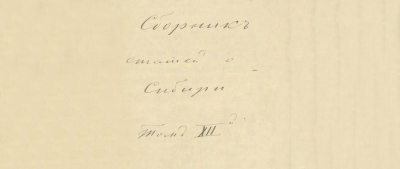 Сборникъ
статей о
Сибири
Томъ XII